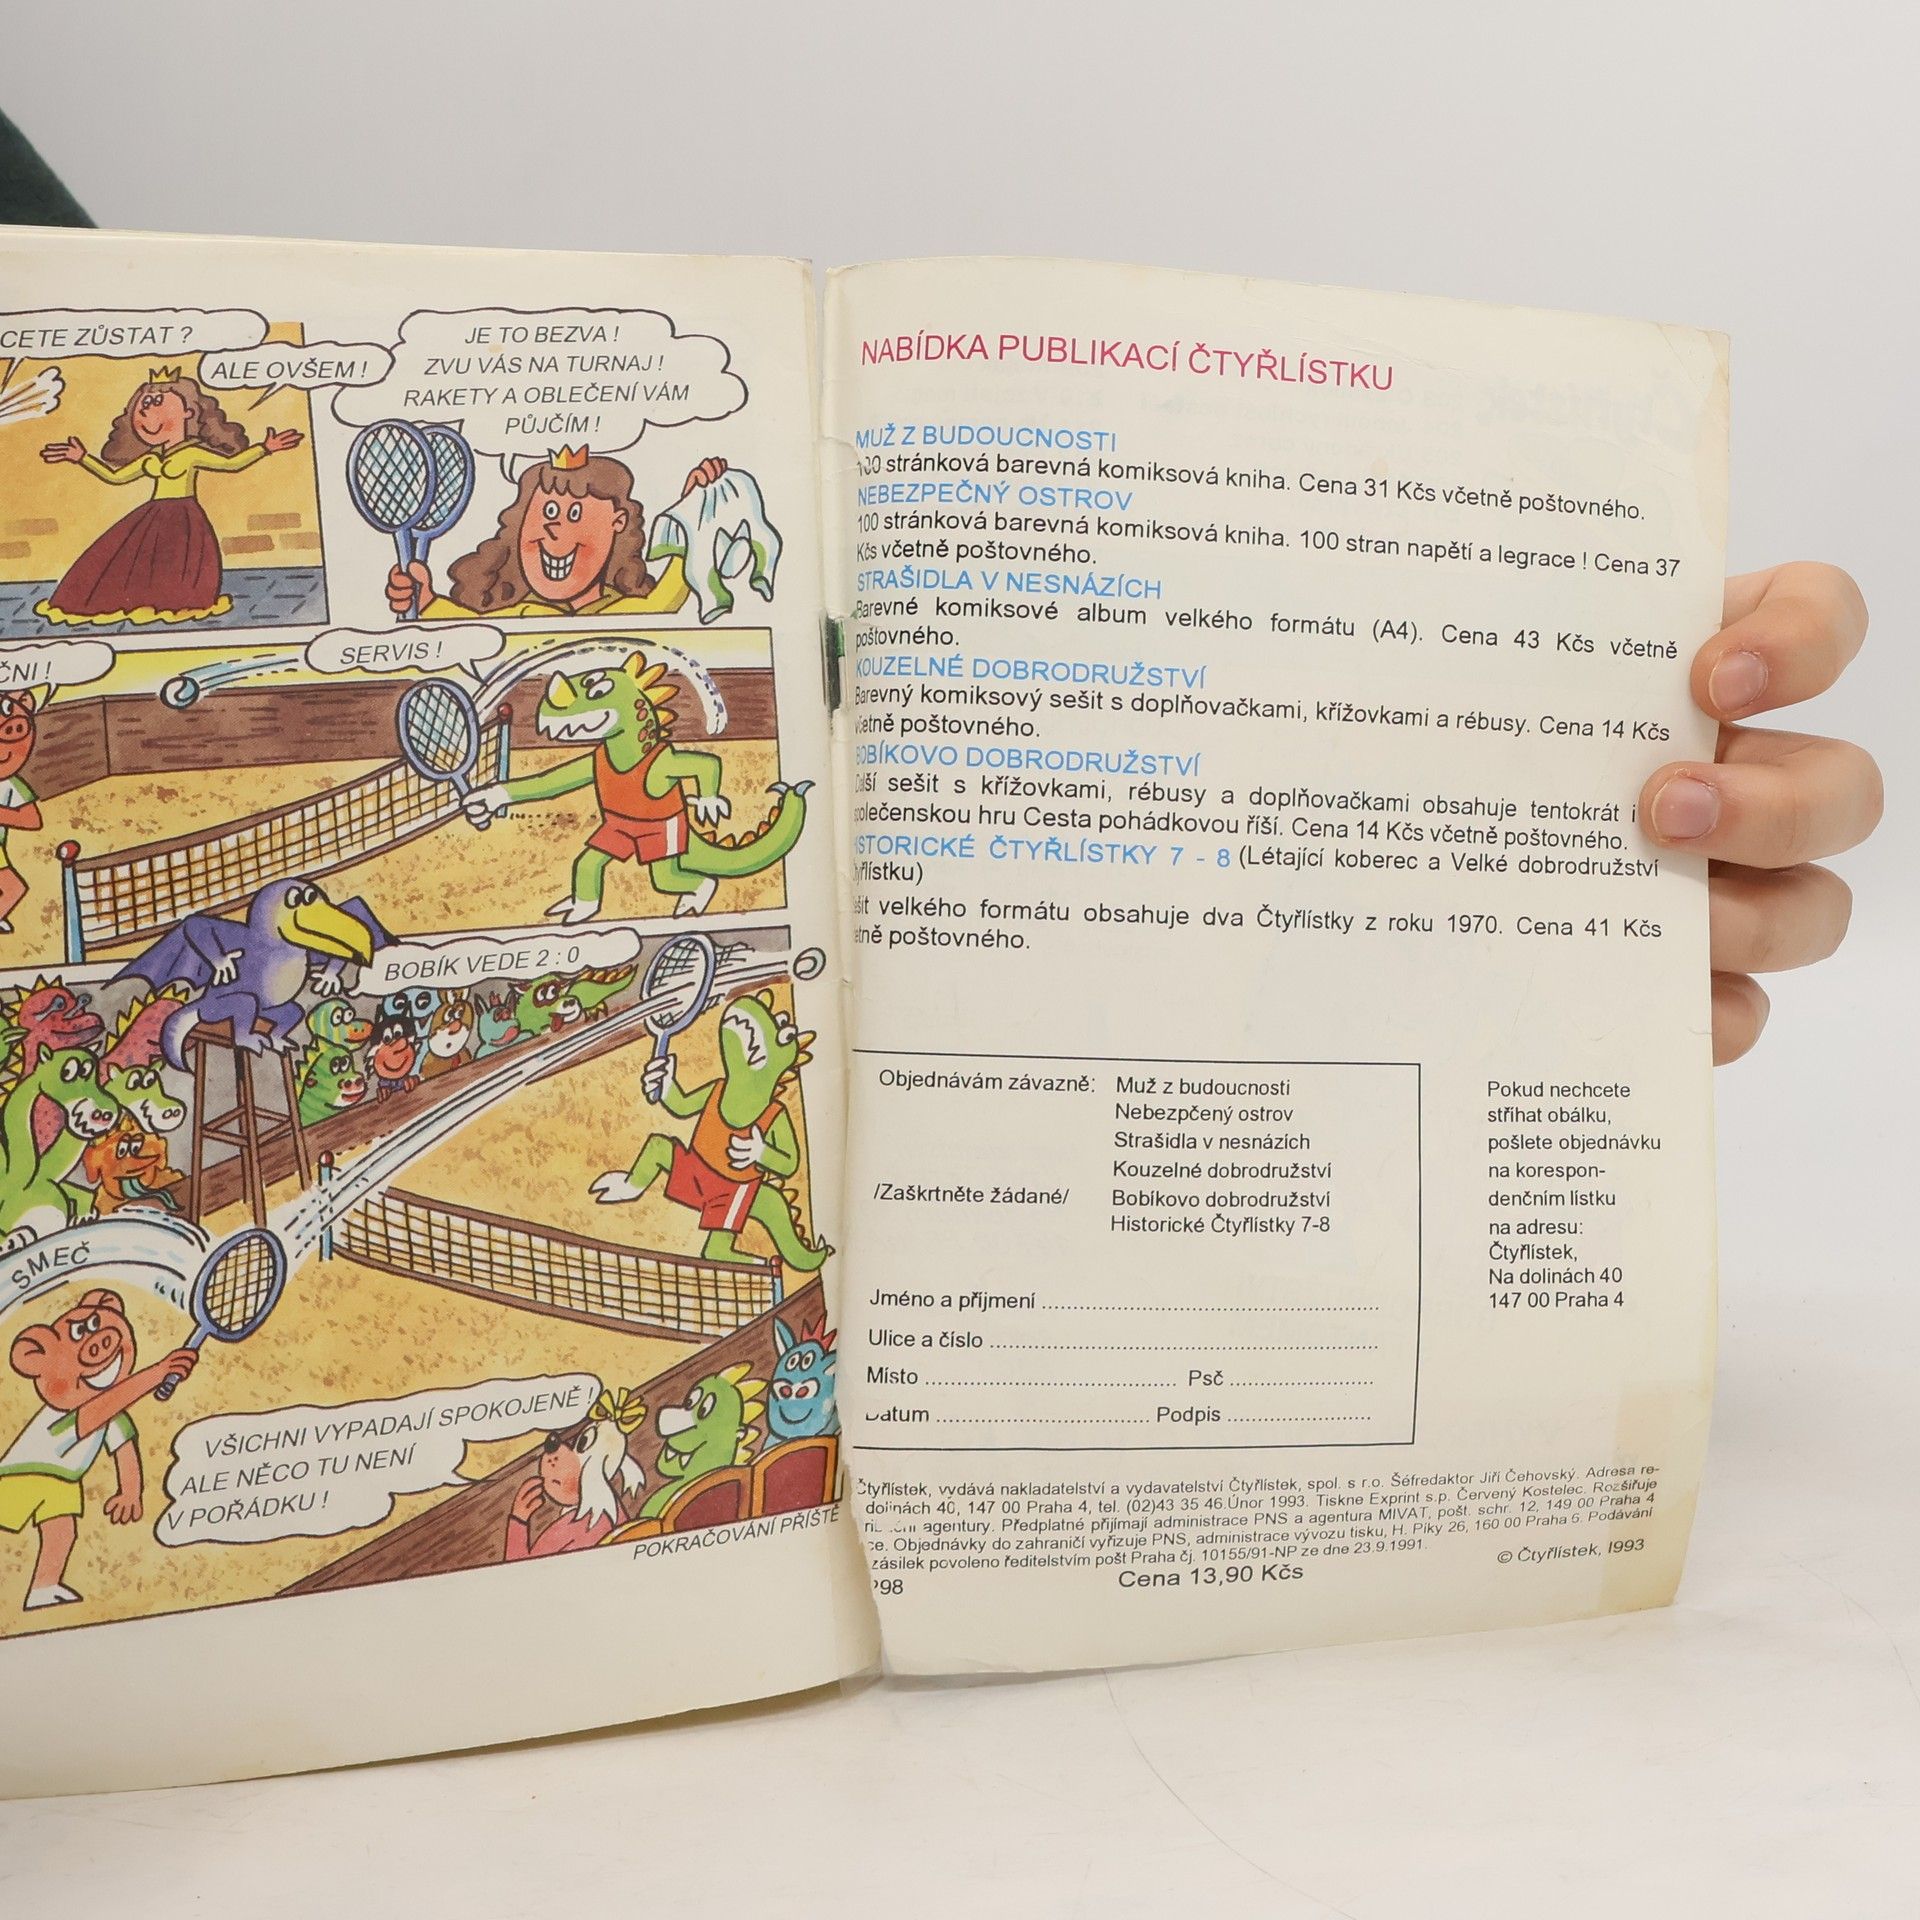 CETE ZŮSTAT ?
ALE OVŠEM !
JE TO BEZVA !
ZVU VÁS NA TURNAJ !
RAKETY A OBLEČENÍ VÁM
PŮJČÍM !
SERVIS !
BOBÍK VEDE 2 : 0
SMEČ
VŠICHNI VYPADAJÍ SPOKOJENĚ !
ALE NĚCO TU NENÍ
V POŘÁDKU !
POKRAČOVÁNÍ PŘÍŠTĚ
NABÍDKA PUBLIKACÍ ČTYŘLÍSTKU
MUŽ Z BUDOUCNOSTI
100 stránková barevná komiksová kniha. Cena 31 Kčs včetně poštovného.
NEBEZPEČNÝ OSTROV
100 stránková barevná komiksová kniha. 100 stran napětí a legrace ! Cena 37
Kčs včetně poštovného.
STRAŠIDLA V NESNÁZÍCH
Barevné komiksové album velkého formátu (A4). Cena 43 Kčs včetně
poštovného.
KOUZELNÉ DOBRODRUŽSTVÍ
Barevný komiksový sešit s doplňovačkami, křížovkami a rébusy. Cena 14 Kčs
včetně poštovného.
BOBÍKOVO DOBRODRUŽSTVÍ
Další sešit s křížovkami, rébusy a doplňovačkami obsahuje tentokrát i
společenskou hru Cesta pohádkovou říší. Cena 14 Kčs včetně poštovného.
HISTORICKÉ ČTYŘLÍSTKY 7 - 8 (Létající koberec a Velké dobrodružství
Čtyřlístku)
Sešit velkého formátu obsahuje dva Čtyřlístky z roku 1970. Cena 41 Kčs
včetně poštovného.
Objednávám závazně: Muž z budoucnosti
Nebezpčený ostrov
Strašidla v nesnázích
Kouzelné dobrodružství
/Zaškrtněte žádané/ Bobíkovo dobrodružství
Historické Čtyřlístky 7-8
Jméno a příjmení
Ulice a číslo
Místo Psč
Datum Podpis
Pokud nechcete
stříhat obálku,
pošlete objednávku
na korespon-
denčním lístku
na adresu:
Čtyřlístek,
Na dolinách 40
147 00 Praha 4
Čtyřlístek, vydává nakladatelství a vydavatelství Čtyřlístek, spol. s r.o. Šéfredaktor Jiří Čehovský. Adresa re-
dolinách 40, 147 00 Praha 4, tel. (02)43 35 46.Únor 1993. Tiskne Exprint s.p. Červený Kostelec. Rozšiřuje
agentury. Předplatné přijímají administrace PNS a agentura MIVAT, pošt. schr. 12, 149 00 Praha 4
ce. Objednávky do zahraničí vyřizuje PNS, administrace vývozu tisku, H. Píky 26, 160 00 Praha 6. Podávání
zásilek povoleno ředitelstvím pošt Praha čj. 10155/91-NP ze dne 23.9.1991.
© Čtyřlístek, 1993
98 Cena 13,90 Kčs